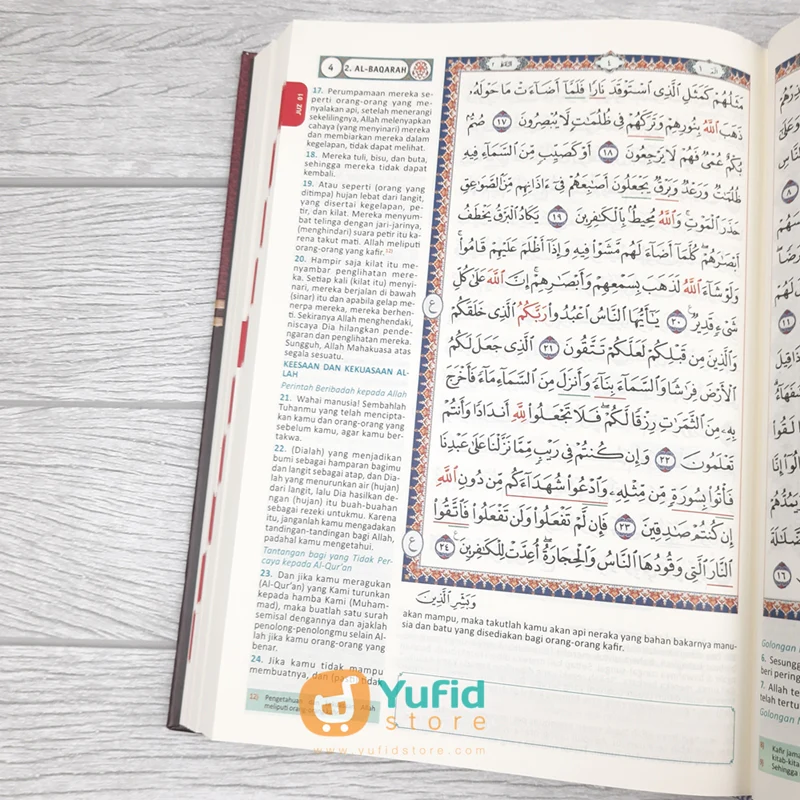 4 2. AL-BAQARAH
JUZ 01
17. Perumpamaan mereka se-
perti orang-orang yang me-
nyalakan api, setelah menerangi
sekelilingnya, Allah melenyapkan
cahaya (yang menyinari) mereka
dan membiarkan mereka dalam
kegelapan, tidak dapat melihat.
18. Mereka tuli, bisu, dan buta,
sehingga mereka tidak dapat
kembali.
19. Atau seperti (orang yang
ditimpa) hujan lebat dari langit,
yang disertai kegelapan, pe-
tir, dan kilat. Mereka menyum-
bat telinga dengan jari-jarinya,
(menghindari) suara petir itu ka-
rena takut mati. Allah meliputi
orang-orang yang kafir.12)
20. Hampir saja kilat itu me-
nyambar penglihatan mere-
ka. Setiap kali (kilat itu) menyi-
nari, mereka berjalan di bawah
(sinar) itu dan apabila gelap me-
nerpa mereka, mereka berhen-
ti. Sekiranya Allah menghendaki,
niscaya Dia hilangkan penden-
garan dan penglihatan mereka.
Sungguh, Allah Mahakuasa atas
segala sesuatu.
KEESAAN DAN KEKUASAAN AL-
LAH
Perintah Beribadah kepada Allah
21. Wahai manusia! Sembahlah
Tuhanmu yang telah mencipta-
kan kamu dan orang-orang yang
sebelum kamu, agar kamu ber-
takwa.
22. (Dialah) yang menjadikan
bumi sebagai hamparan bagimu
dan langit sebagai atap, dan Dia-
lah yang menurunkan air (hujan)
dari langit, lalu Dia hasilkan de-
ngan (hujan) itu buah-buahan
sebagai rezeki untukmu. Karena
itu, janganlah kamu mengadakan
tandingan-tandingan bagi Allah,
padahal kamu mengetahui.
Tantangan bagi yang Tidak Per-
caya kepada Al-Qur'an
23. Dan jika kamu meragukan
(Al-Qur'an) yang Kami turunkan
kepada hamba Kami (Muham-
mad), maka buatlah satu surah
semisal dengannya dan ajaklah
penolong-penolongmu selain Al-
lah jika kamu orang-orang yang
benar.
24. Jika kamu tidak mampu
membuatnya, dan (pasti) tidak
12) Pengetahuan Allah
meliputi orang
مَثَلُهُمْ كَمَثَلِ الَّذِى اسْتَوْقَدَ نَارًا فَلَمَّآ اَضَاۤءَتْ مَا حَوْلَهٗ
ذَهَبَ اللّٰهُ بِنُوْرِهِمْ وَتَرَكَهُمْ فِيْ ظُلُمٰتٍ لَّا يُبْصِرُوْنَ ١٧ صُمٌّۢ
بُكْمٌ عُمْيٌ فَهُمْ لَا يَرْجِعُوْنَ ١٨ اَوْ كَصَيِّبٍ مِّنَ السَّمَاۤءِ فِيْهِ
ظُلُمٰتٌ وَّرَعْدٌ وَّبَرْقٌۚ يَجْعَلُوْنَ اَصَابِعَهُمْ فِيْٓ اٰذَانِهِمْ مِّنَ الصَّوَاعِقِ
حَذَرَ الْمَوْتِۗ وَاللّٰهُ مُحِيْطٌۢ بِالْكٰفِرِيْنَ ١٩ يَكَادُ الْبَرْقُ يَخْطَفُ
اَبْصَارَهُمْۗ كُلَّمَآ اَضَاۤءَ لَهُمْ مَّشَوْا فِيْهِۙ وَاِذَآ اَظْلَمَ عَلَيْهِمْ قَامُوْاۗ
وَلَوْ شَاۤءَ اللّٰهُ لَذَهَبَ بِسَمْعِهِمْ وَاَبْصَارِهِمْۗ اِنَّ اللّٰهَ عَلٰى كُلِّ
شَيْءٍ قَدِيْرٌ ٢٠ يٰٓاَيُّهَا النَّاسُ اعْبُدُوْا رَبَّكُمُ الَّذِيْ خَلَقَكُمْ
وَالَّذِيْنَ مِنْ قَبْلِكُمْ لَعَلَّكُمْ تَتَّقُوْنَ ٢١ الَّذِيْ جَعَلَ لَكُمُ
الْاَرْضَ فِرَاشًا وَّالسَّمَاۤءَ بِنَاۤءً وَّاَنْزَلَ مِنَ السَّمَاۤءِ مَاۤءً فَاَخْرَجَ
بِهٖ مِنَ الثَّمَرٰتِ رِزْقًا لَّكُمْۚ فَلَا تَجْعَلُوْا لِلّٰهِ اَنْدَادًا وَّاَنْتُمْ
تَعْلَمُوْنَ ٢٢ وَاِنْ كُنْتُمْ فِيْ رَيْبٍ مِّمَّا نَزَّلْنَا عَلٰى عَبْدِنَا
فَأْتُوْا بِسُوْرَةٍ مِّنْ مِّثْلِهٖۖ وَادْعُوْا شُهَدَاۤءَكُمْ مِّنْ دُوْنِ اللّٰهِ
اِنْ كُنْتُمْ صٰدِقِيْنَ ٢٣ فَاِنْ لَّمْ تَفْعَلُوْا وَلَنْ تَفْعَلُوْا فَاتَّقُوا
النَّارَ الَّتِيْ وَقُوْدُهَا النَّاسُ وَالْحِجَارَةُۖ اُعِدَّتْ لِلْكٰفِرِيْنَ ٢٤
ع
ع
وَبَشِّرِ الَّذِيْنَ
akan mampu, maka takutlah kamu akan api neraka yang bahan bakarnya manu-
sia dan batu yang disediakan bagi orang-orang kafir.
Golongan
6. Sesungg
beri pering
7. Allah te
telah tertu
Golongan
Kafir jama
kitab-kita
Sehingga
Yufid
store
www.yufidstore.com